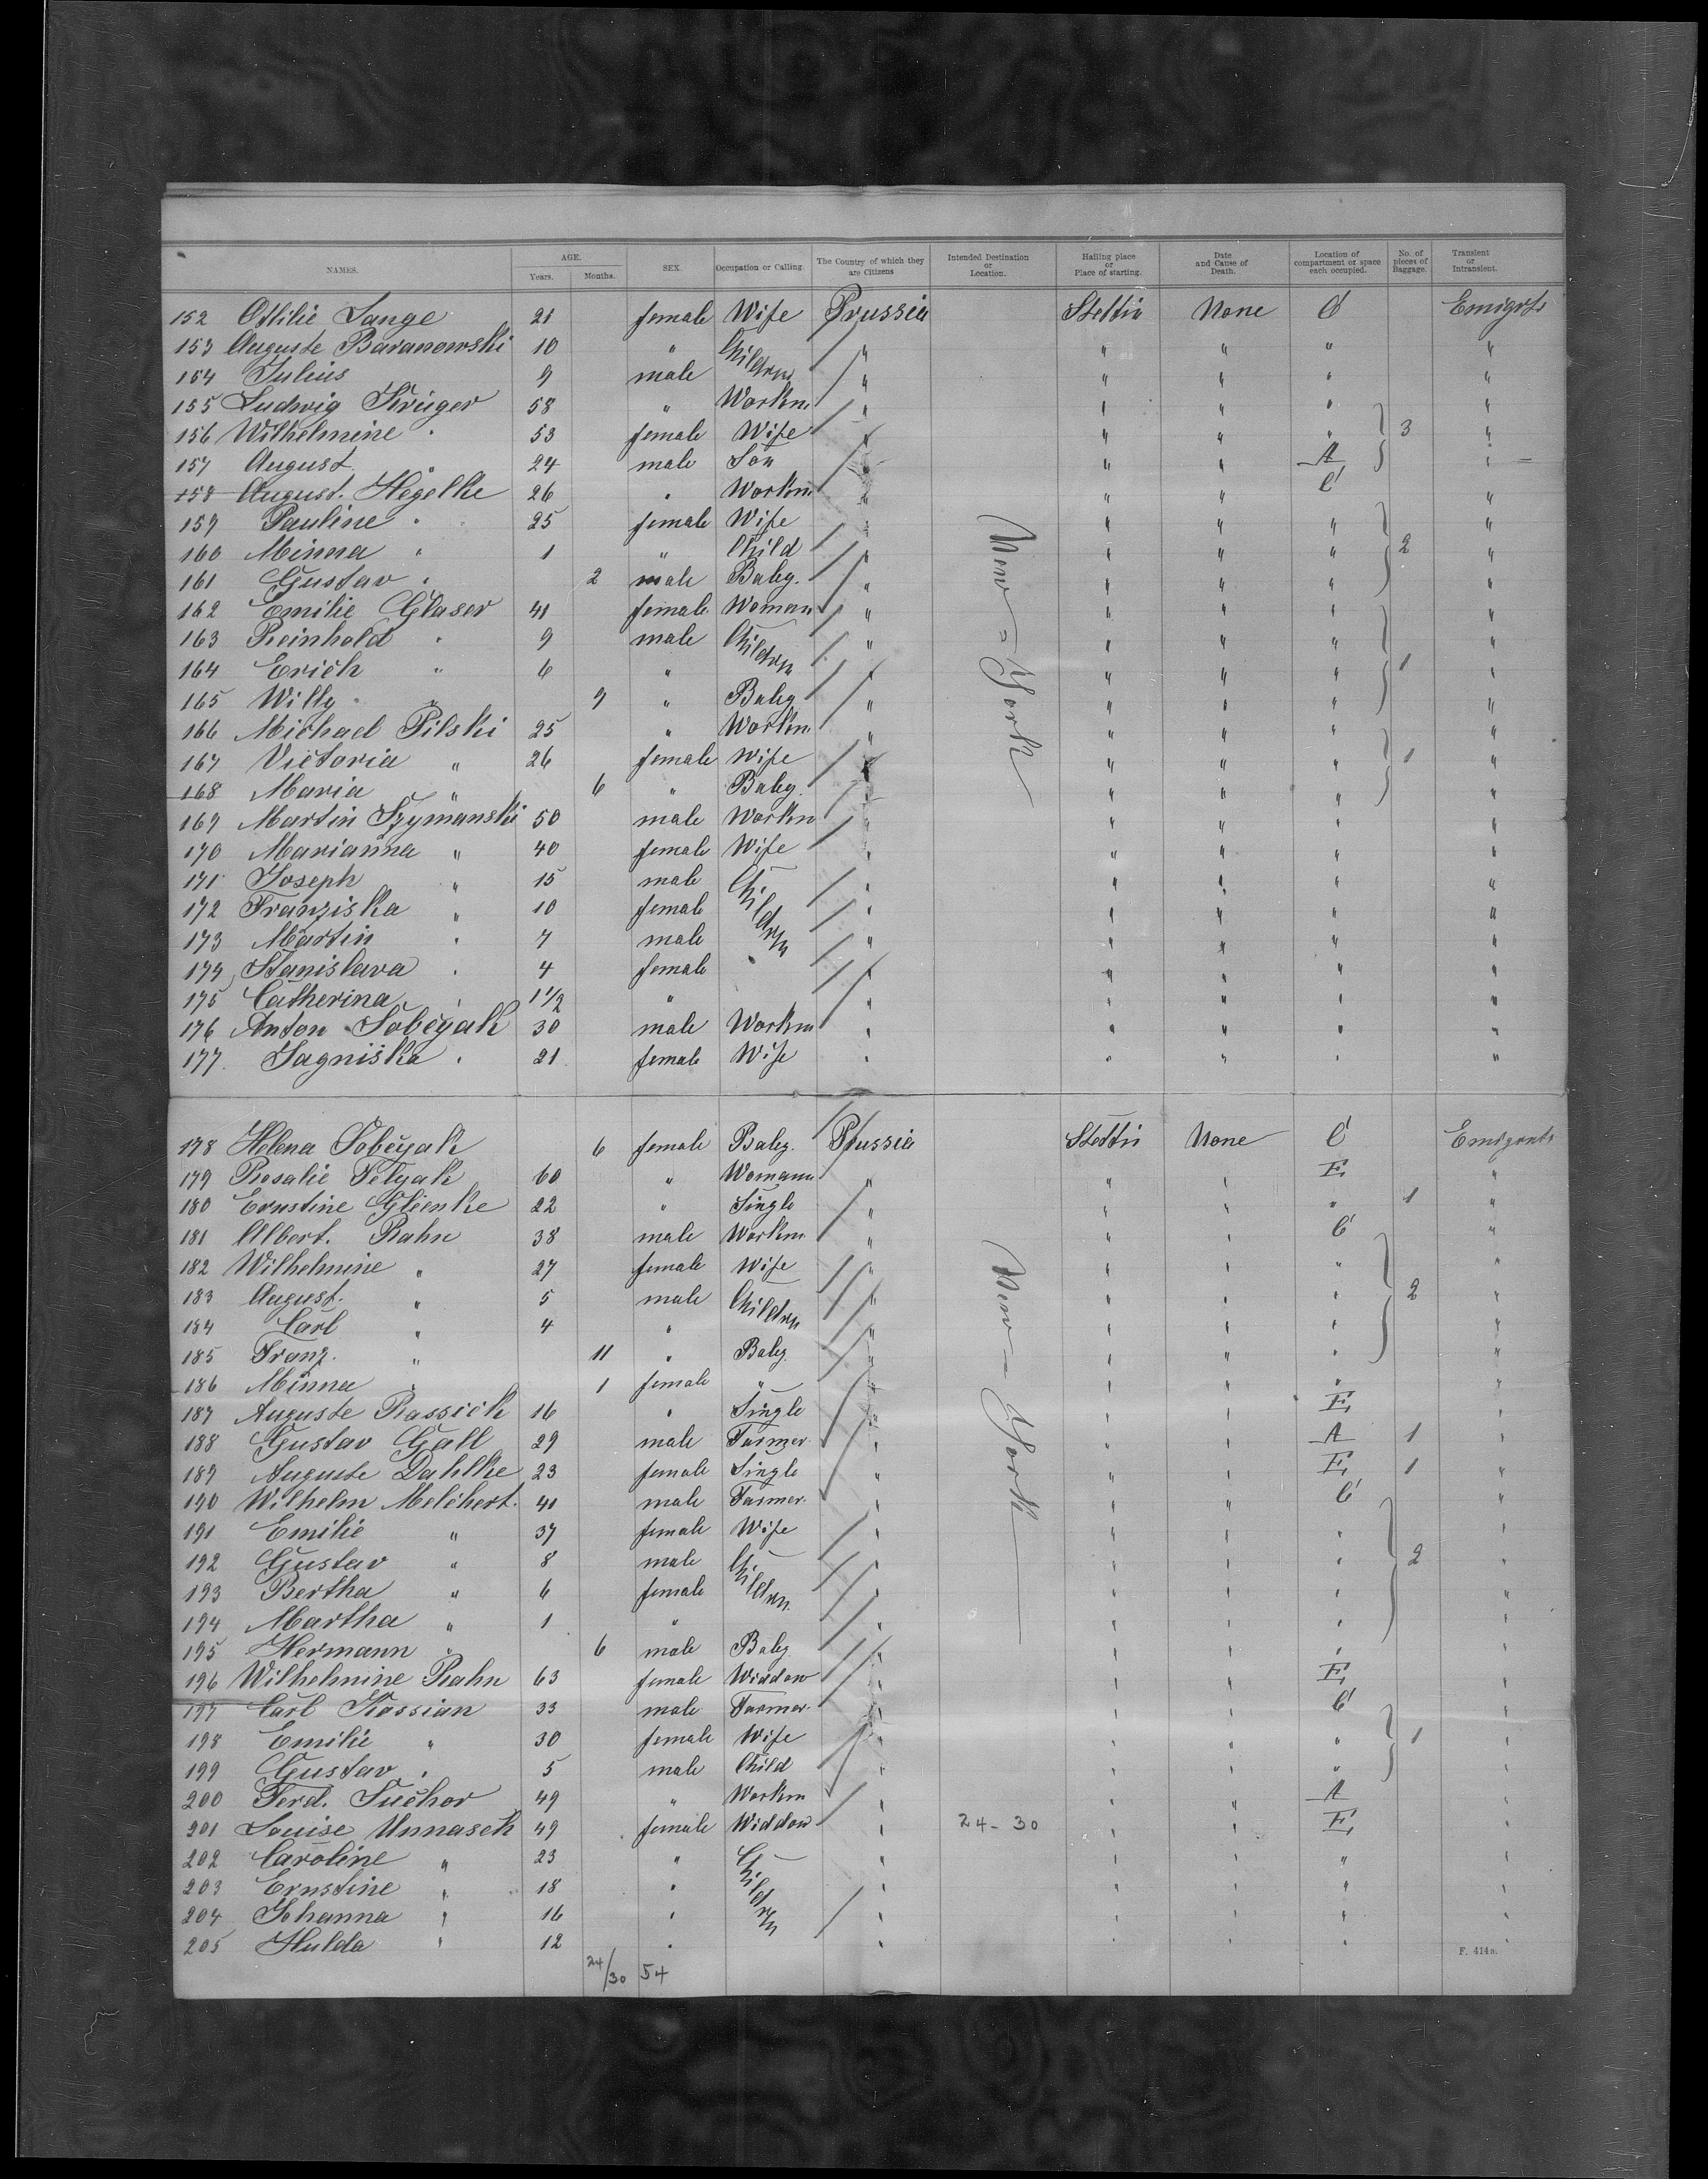 NAMES. AGE. Years. Months. SEX. Occupation or Calling. The Country of which they are Citizens Intended Destination or Location. Hailing place or Place of starting. Date and Cause of Death. Location of compartment or space each occupied. No. of pieces of Baggage. Transient or Intransient.
152 Ottilie Lange 21 female Wife Prussia Stettin None C Emigrts
153 Auguste Baranowski 10 " Children " " " " "
154 Julius 9 male " " " " "
155 Ludwig Krüger 58 " Workm. " " " " "
156 Wilhelmine " 53 female Wife " " " " 3 "
157 August " 24 male Son " " " A "
158 August. Hegelke 26 " Workm " " " C "
159 Pauline " 25 female Wife " " " " "
160 Minna " 1 " Child " " " " 2 "
161 Gustav " 2 male Baby. " " " " "
162 Emilie Glaser 41 female Woman " " " " "
163 Reinhold " 9 male Children " " " " "
164 Erich " 6 " " " " " 1 "
165 Willy " 9 " Baby " " " " "
166 Michael Pilski 25 " Workm. " " " " "
167 Victoria " 26 female Wife " " " " 1 "
168 Maria " 6 " Baby. " " " " "
169 Martin Szymanski 50 male Workm " " " " "
170 Marianna " 40 female Wife " " " " "
171 Joseph " 15 male Children " " " " "
172 Franziska " 10 female " " " " "
173 Martin " 7 male " " " " "
174 Stanislava " 4 female " " " " "
175 Catherina " 1 1/2 " " " " " "
176 Anton Sobczyak 30 male Workm " " " " "
177. Jagniska " 21 female Wife " " " " "
New-York
178 Helena Sobczyak 6 female Baby. Prussia Stettin None C Emigrants
179 Rosalie 60 " Womann " " " E "
180 Ernstine Glienke 22 " Single " " " " 1 "
181 Albert. Rahn 38 male Workm. " " " C "
182 Wilhelmine " 27 female Wife " " " " "
183 August. " 5 male Children " " " " 2 "
184 Carl " 4 " " " " " "
185 Franz. " 11 " Baby. " " " " "
186 Minna " 1 female " " " " " "
187 Auguste Rassick 16 " Single " " " E "
188 Gustav Gall 29 male Farmer. " " " A 1 "
189 Auguste Dahlke 23 female Single " " " E 1 "
190 Wilhelm Melchert. 41 male Farmer. " " " C "
191 Emilie " 37 female Wife " " " " "
192 Gustav " 8 male Children " " " " 2 "
193 Bertha " 6 female " " " " "
194 Martha " 1 " " " " " "
195 Hermann " 6 male Baby " " " " "
196 Wilhelmine Rahn 63 female Widdow " " " E "
197 Carl Kassian 33 male Farmer. " " " C "
198 Emilie " 30 female Wife " " " " 1 "
199 Gustav " 5 male Child " " " " "
200 Ferd. Tuchor 49 " Workm " " " A "
201 Louise Unnasch 49 female Widdow " 24-30 " " E "
202 Caroline " 23 " Children " " " " "
203 Ernstine " 18 " " " " " "
204 Johanna " 16 " " " " " "
205 Hulda " 12 " " " " "
New-York
24/30 54
F. 414a.